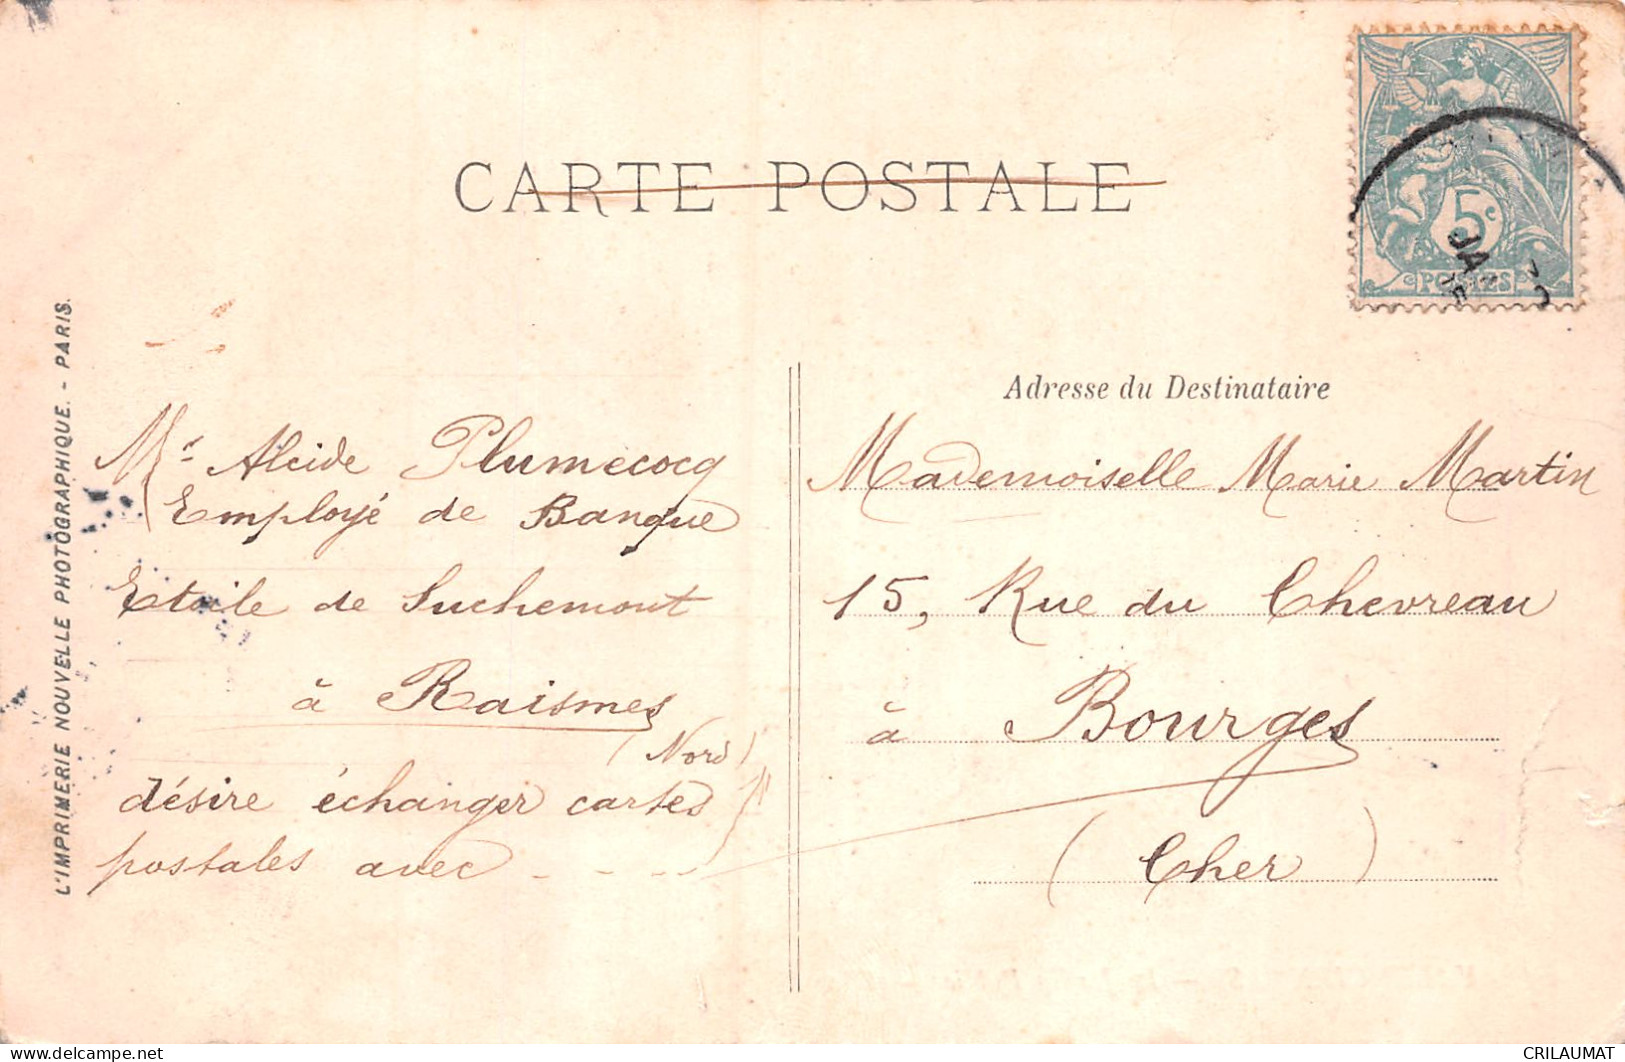 CARTE POSTALE
5c
POSTES
JA
L'IMPRIMERIE NOUVELLE PHOTOGRAPHIQUE. - PARIS.
Mr Alcide Plumecocq
Employé de Banque
Etoile de Suchemont
à Raismes
(Nord)
désire échanger cartes
postales avec - - - -
Adresse du Destinataire
Mademoiselle Marie Martin
15, Rue du Chevreau
à Bourges
(Cher)
delcampe.net
CRILAUMAT